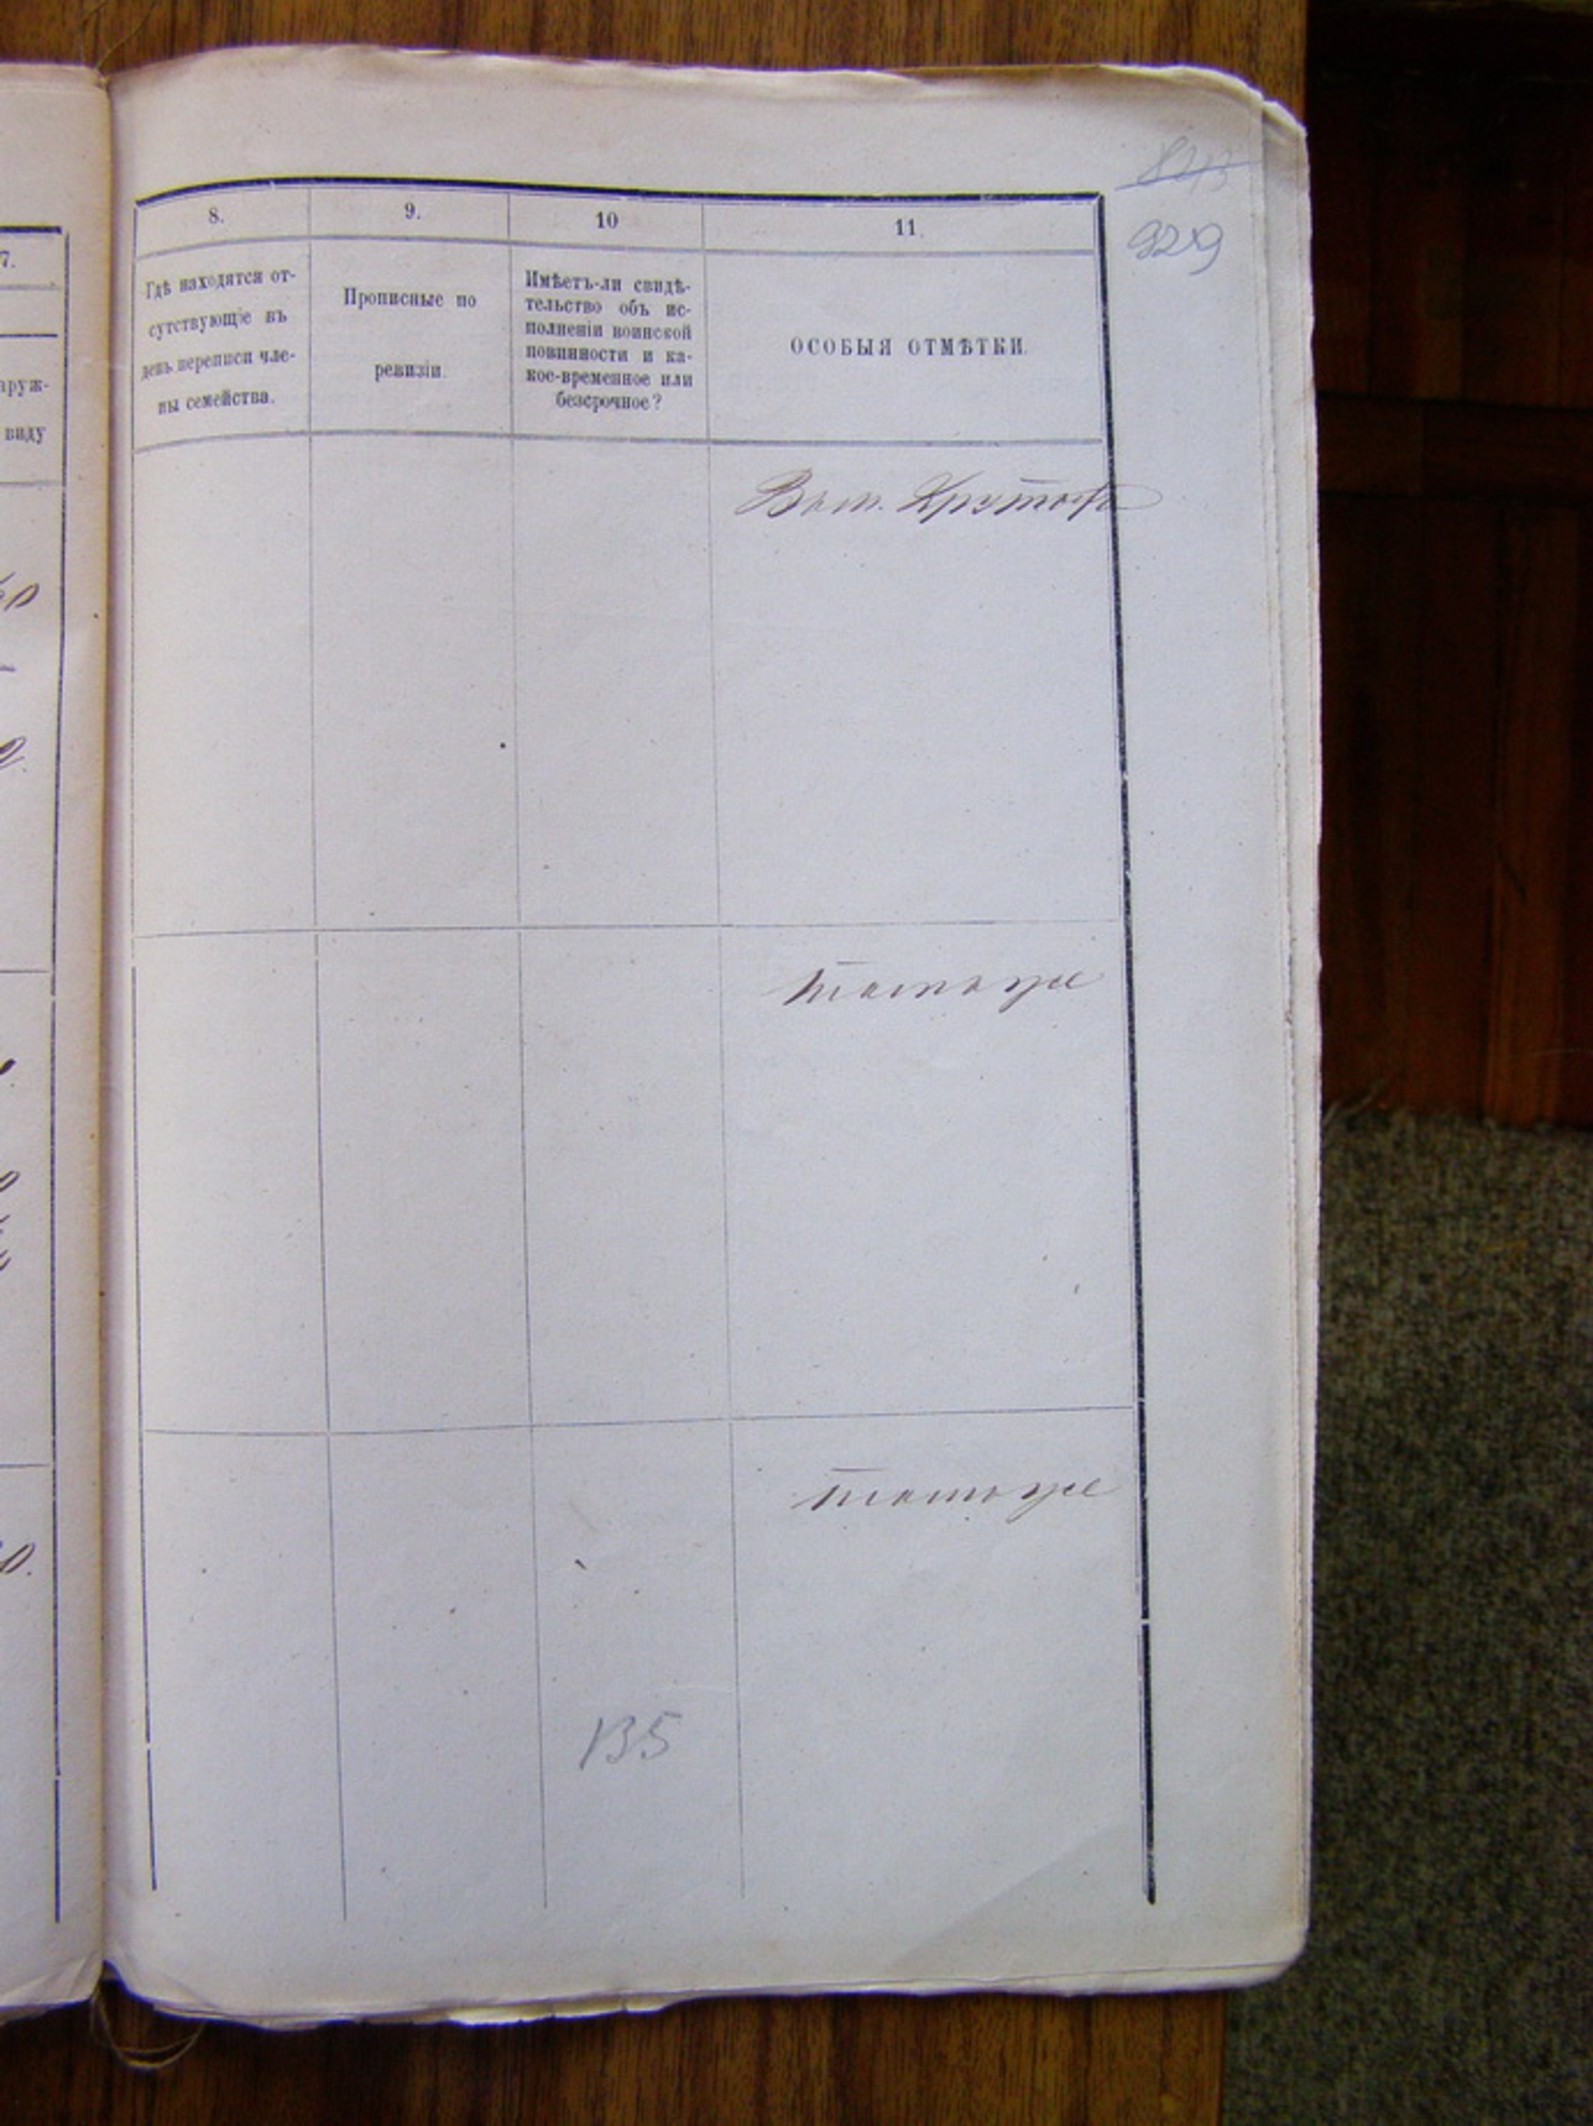 8.
9.
10
11.
7.
Гдѣ находятся от-
сутствующіе въ
день переписи чле-
ны семейства.
Прописные по
ревизіи.
Имѣетъ-ли свидѣ-
тельство объ ис-
полненіи воинской
повинности и ка-
кое-временное или
безсрочное?
ОСОБЫЯ ОТМѢТКИ.
аруж-
виду
929
тотоже
тотоже
135